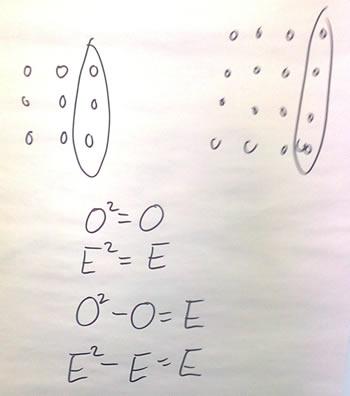 O²=O
E²=E
O²-O=E
E²-E=E